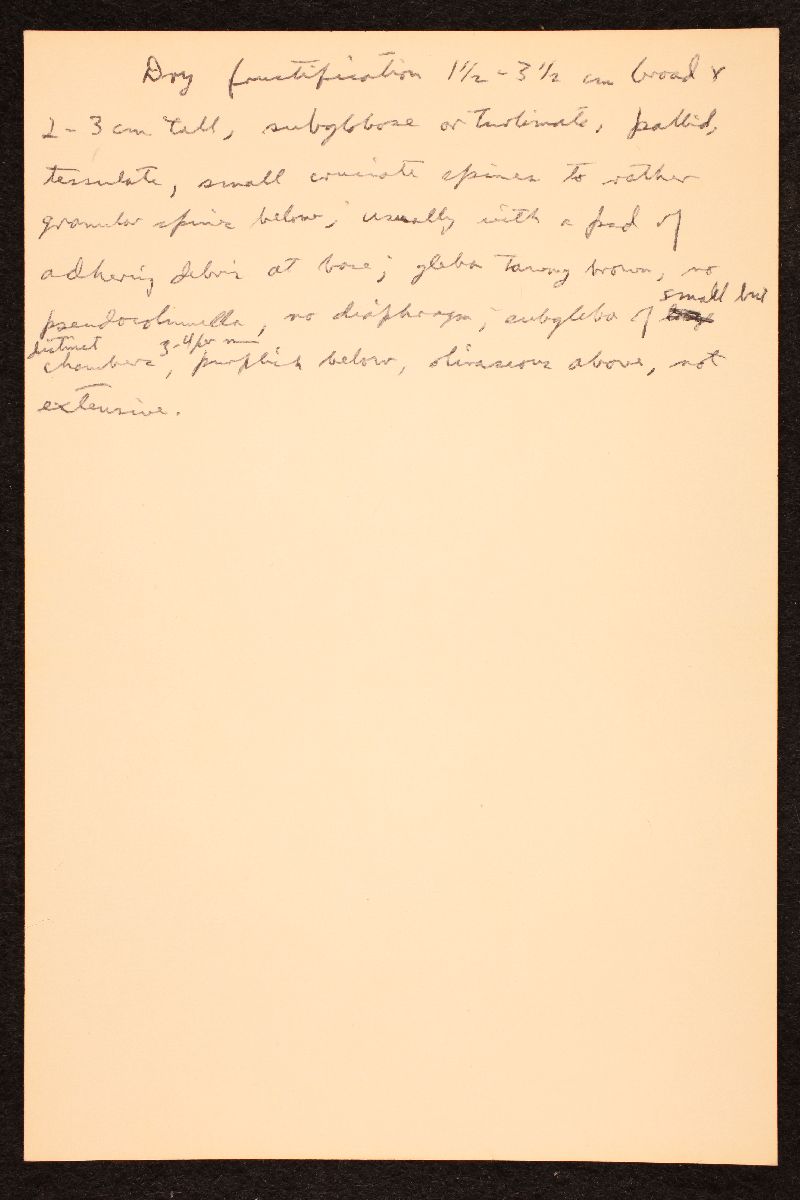 Dry fructification 1 1/2 - 3 1/2 cm broad x
2 - 3 cm tall, subglobose or turbinate, pallid,
tessulate, small cruciate spines to rather
granular spines below; usually with a pad of
adhering debris at base; gleba tawny brown, no
pseudocolumella, no diaphragm; subgleba of small but
distinct chambers 3-4 per mm, purplish below, olivaceous above, not
extensive.